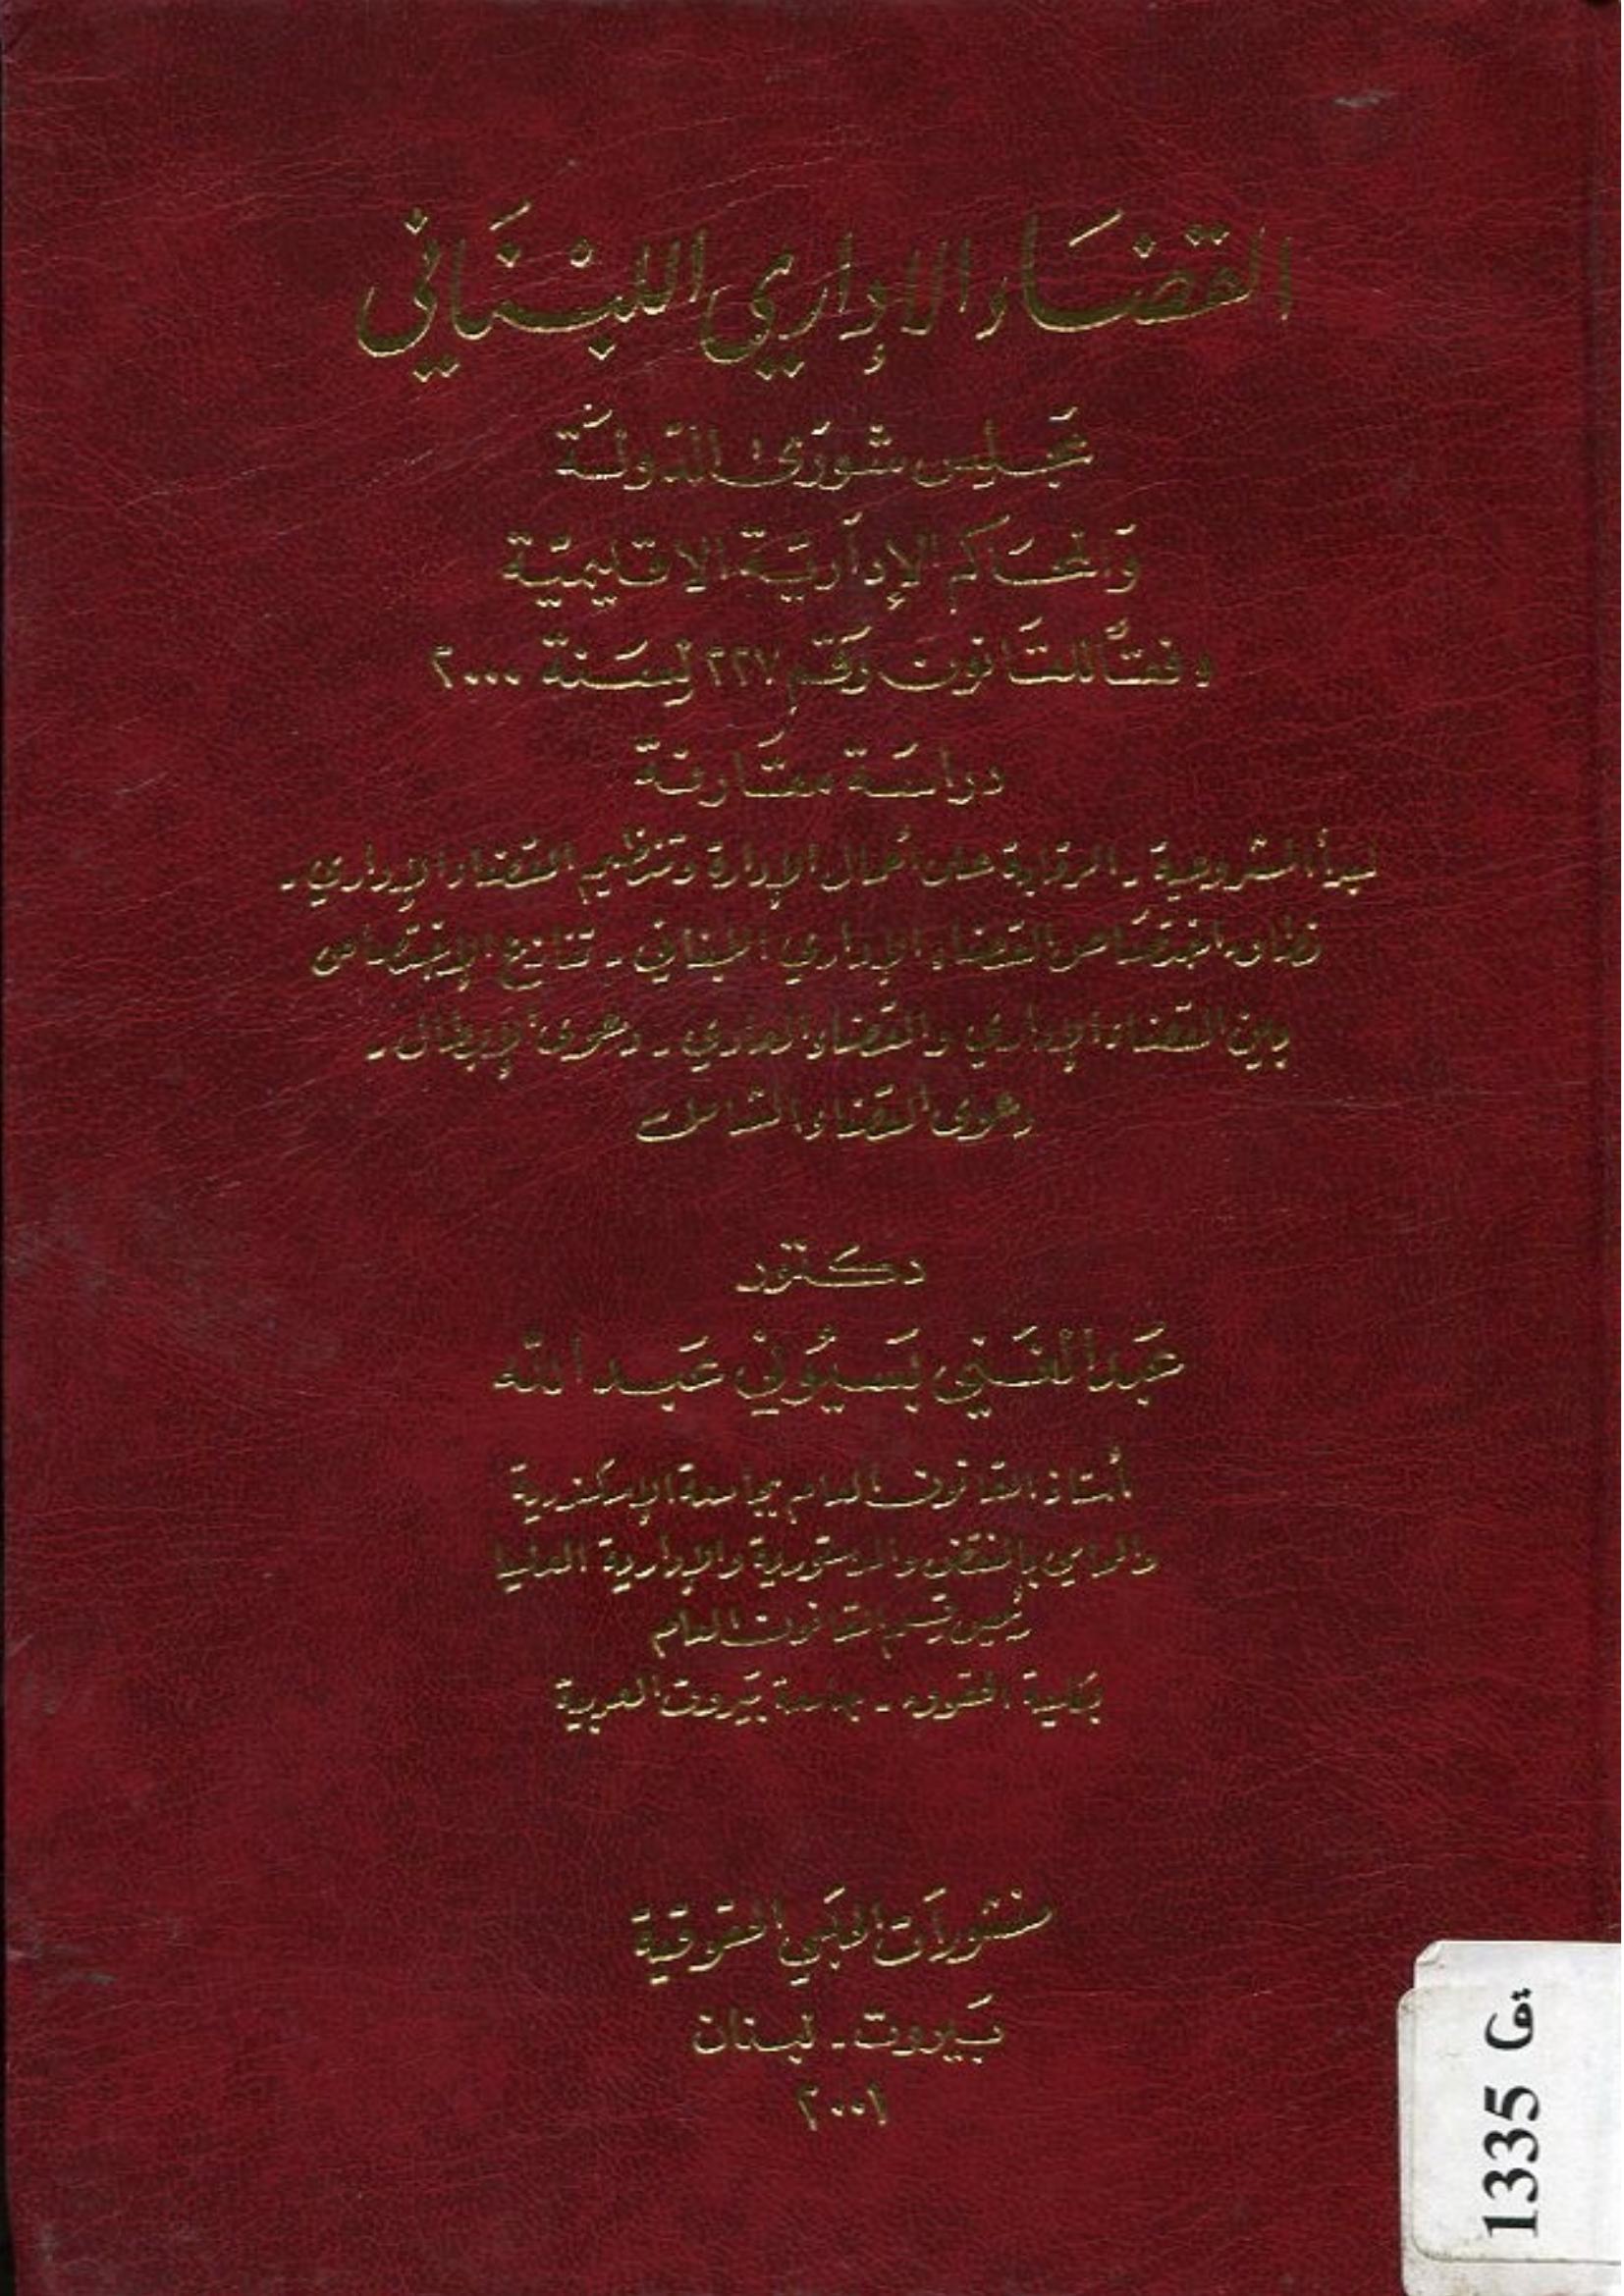 القضاء الإداري اللبناني
مجلس شورى الدولة
والمحاكم الإدارية الاقليمية
وفقاً للقانون رقم ٢٢٧ لسنة ٢٠٠٠
دراسة مقارنة
لمبدأ المشروعية - الرقابة على أعمال الإدارة وتنظيم القضاء الإداري -
نطاق اختصاص القضاء الإداري اللبناني - تنازع الإختصاص
بين القضاء الإداري والقضاء العادي - دعوى الإبطال -
دعوى القضاء الشامل
دكتور
عبد الغني بسيوني عبد الله
أستاذ القانون العام بجامعة الإسكندرية
والمحامي بالنقض والدستورية والإدارية العليا
رئيس قسم القانون العام
بكلية الحقوق - جامعة بيروت العربية
منشورات الحلبي الحقوقية
بيروت - لبنان
٢٠٠١
1335 ق